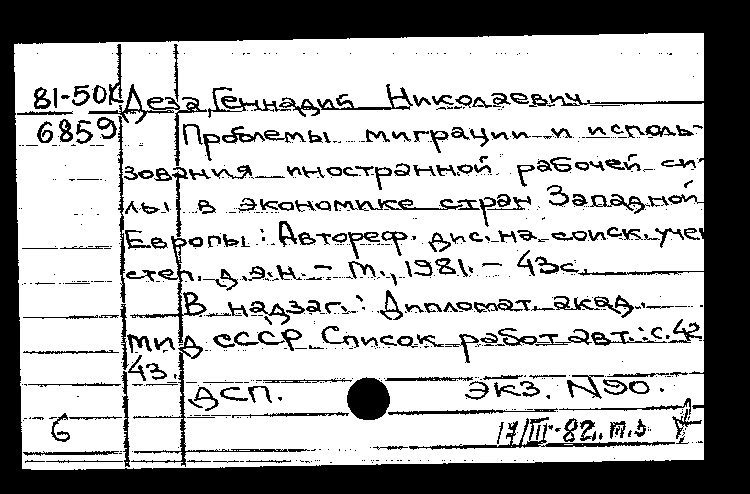 81-50К Деза, Геннадий Николаевич.
6859 Проблемы миграции и исполь-
зования иностранной рабочей си-
лы в экономике стран Западной
Европы: Автореф. дис. на соиск. учен
степ. д.э.н. - М., 1981. - 43с.
В надзаг.: Дипломат. акад.
МИД СССР. Список работ авт.: с.42
43.
ДСП. экз. N90.
6 17/III-82г. т.з